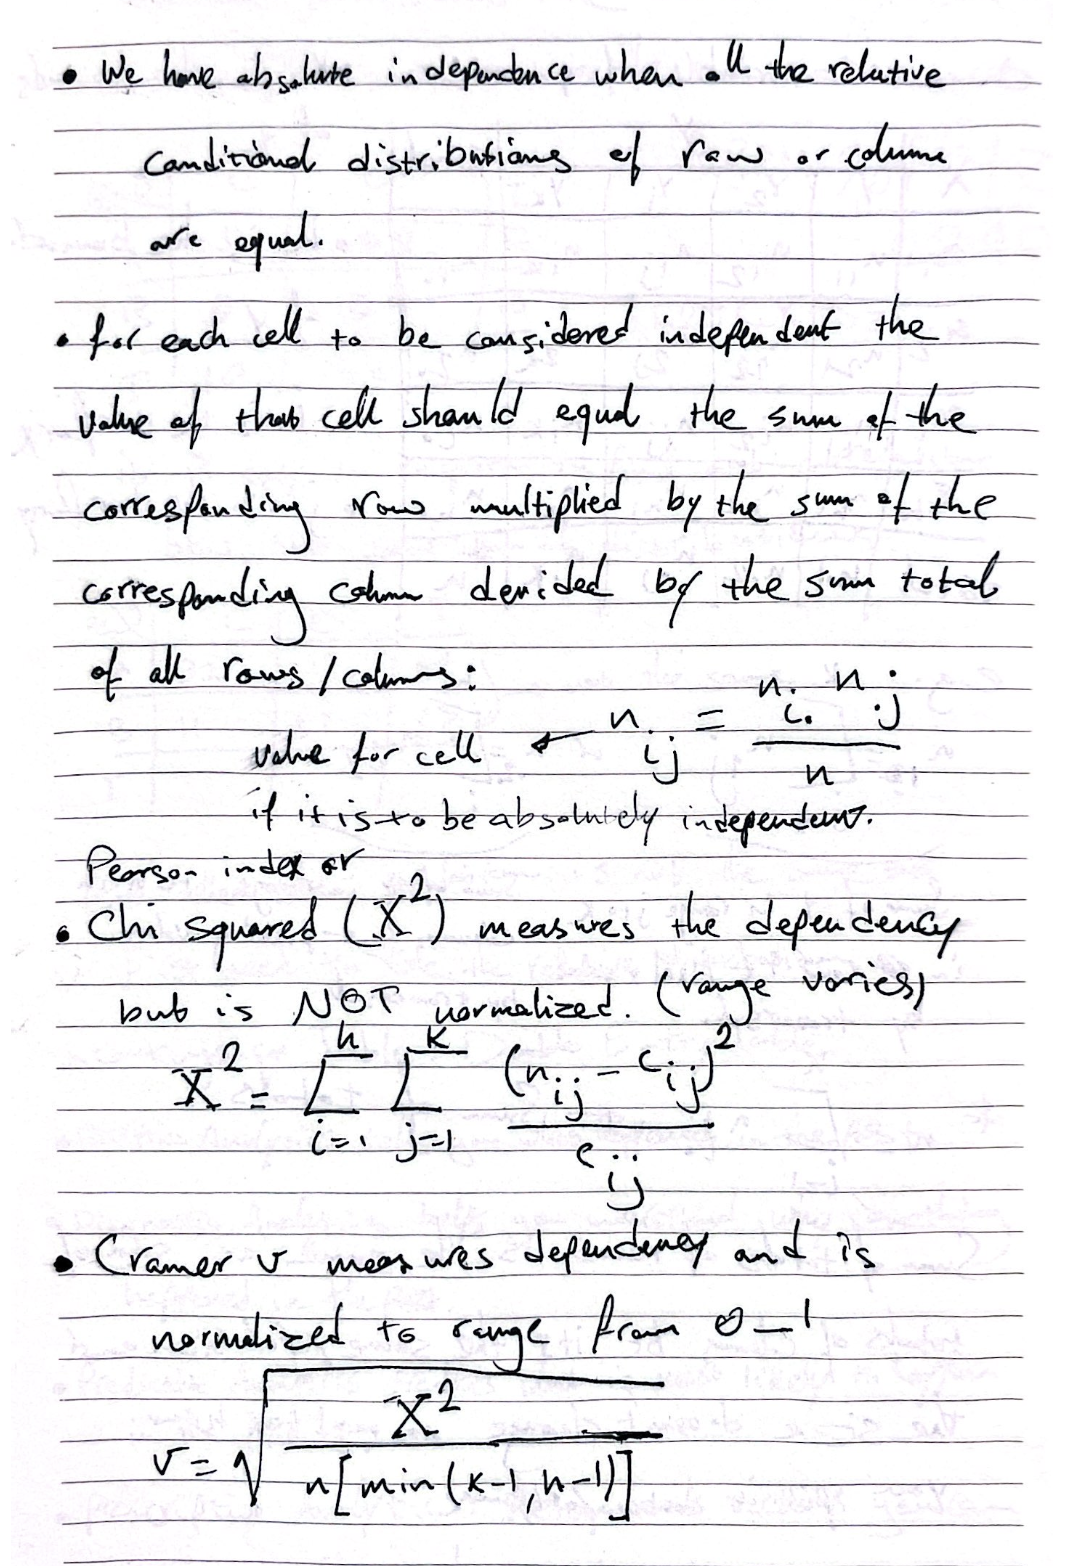 • We have absolute independence when all the relative
conditional distributions of row or column
are equal.
• for each cell to be considered independent the
value of that cell should equal the sum of the
corresponding row multiplied by the sum of the
corresponding column devided by the sum total
of all rows/columns:
value for cell ← n_ij = (n_i. n_.j) / n
if it is to be absolutely independent.
Pearson index or
• Chi squared (X²) measures the dependency
but is NOT normalized. (range varies)
X² = Σ_{i=1}^{h} Σ_{j=1}^{k} (n_ij - c_ij)² / e_ij
• Cramer v measures dependency and is
normalized to range from 0-1
v = √( X² / n[min(k-1, h-1)] )